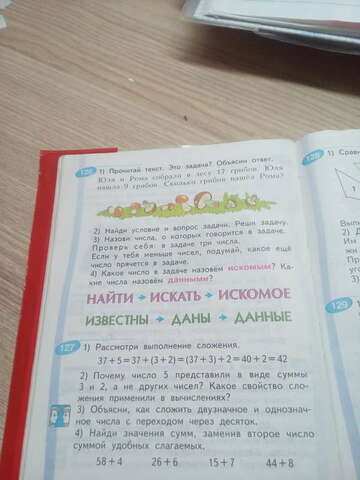 126 1) Прочитай текст. Это задача? Объясни ответ.
Юля и Рома собрали в лесу 17 грибов. Юля
нашла 9 грибов. Сколько грибов нашёл Рома?
2) Найди условие и вопрос задачи. Реши задачу.
3) Назови числа, о которых говорится в задаче.
Проверь себя: в задаче три числа.
Если у тебя меньше чисел, подумай, какое ещё
число прячется в задаче.
4) Какое число в задаче назовём искомым? Ка-
кие числа назовём данными?
НАЙТИ → ИСКАТЬ → ИСКОМОЕ
ИЗВЕСТНЫ → ДАНЫ → ДАННЫЕ
127 1) Рассмотри выполнение сложения.
37+5=37+(3+2)=(37+3)+2=40+2=42
2) Почему число 5 представили в виде суммы
3 и 2, а не других чисел? Какое свойство сло-
жения применили в вычислениях?
3) Объясни, как сложить двузначное и однознач-
ное числа с переходом через десяток.
4) Найди значения сумм, заменив второе число
суммой удобных слагаемых.
58+4 26+6 15+7 44+8
128 1) Срав
Выпи
2) Д
Им
жи
Пр
уго
3)
129